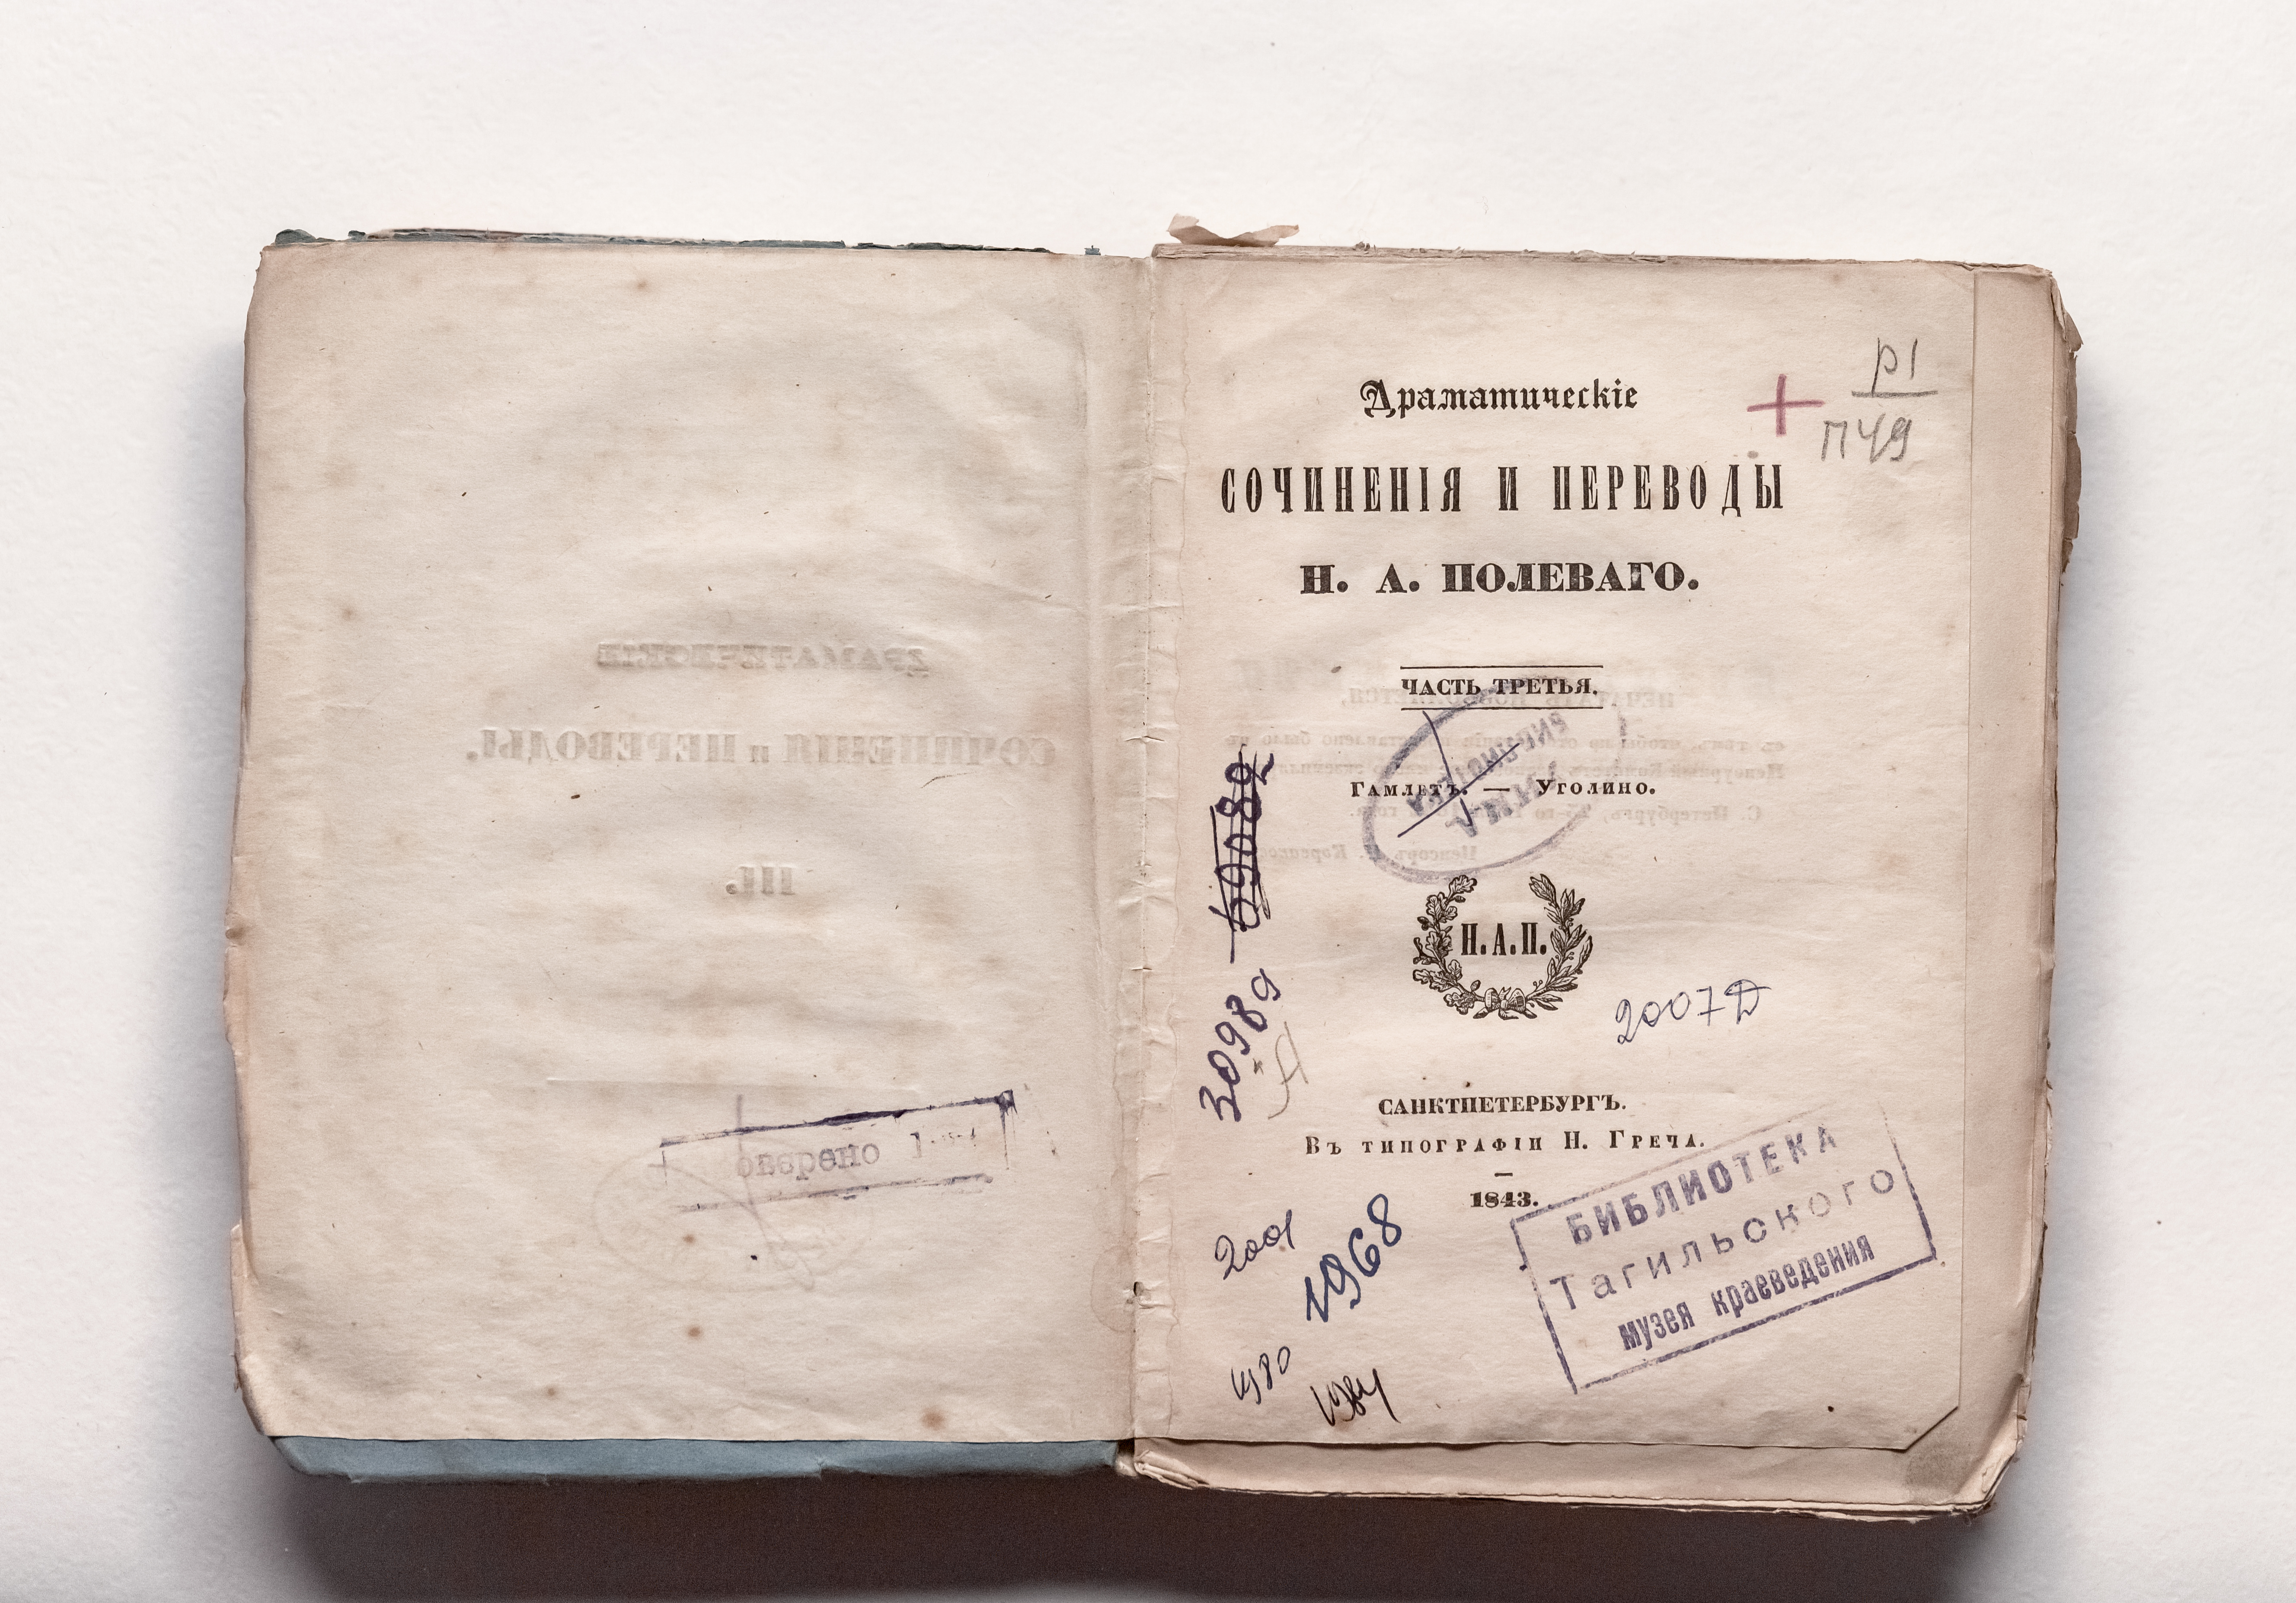 оверено
р1
П49
Драматическіе
СОЧИНЕНІЯ И ПЕРЕВОДЫ
Н. А. ПОЛЕВАГО.
ЧАСТЬ ТРЕТЬЯ.
Гамлетъ. — Уголино.
Н.А.П.
30989
2007Д
САНКТПЕТЕРБУРГЪ.
Въ типографіи Н. Греча.
1843.
БИБЛИОТЕКА
Тагильского
музея краеведения
2001
1968
1980
1984